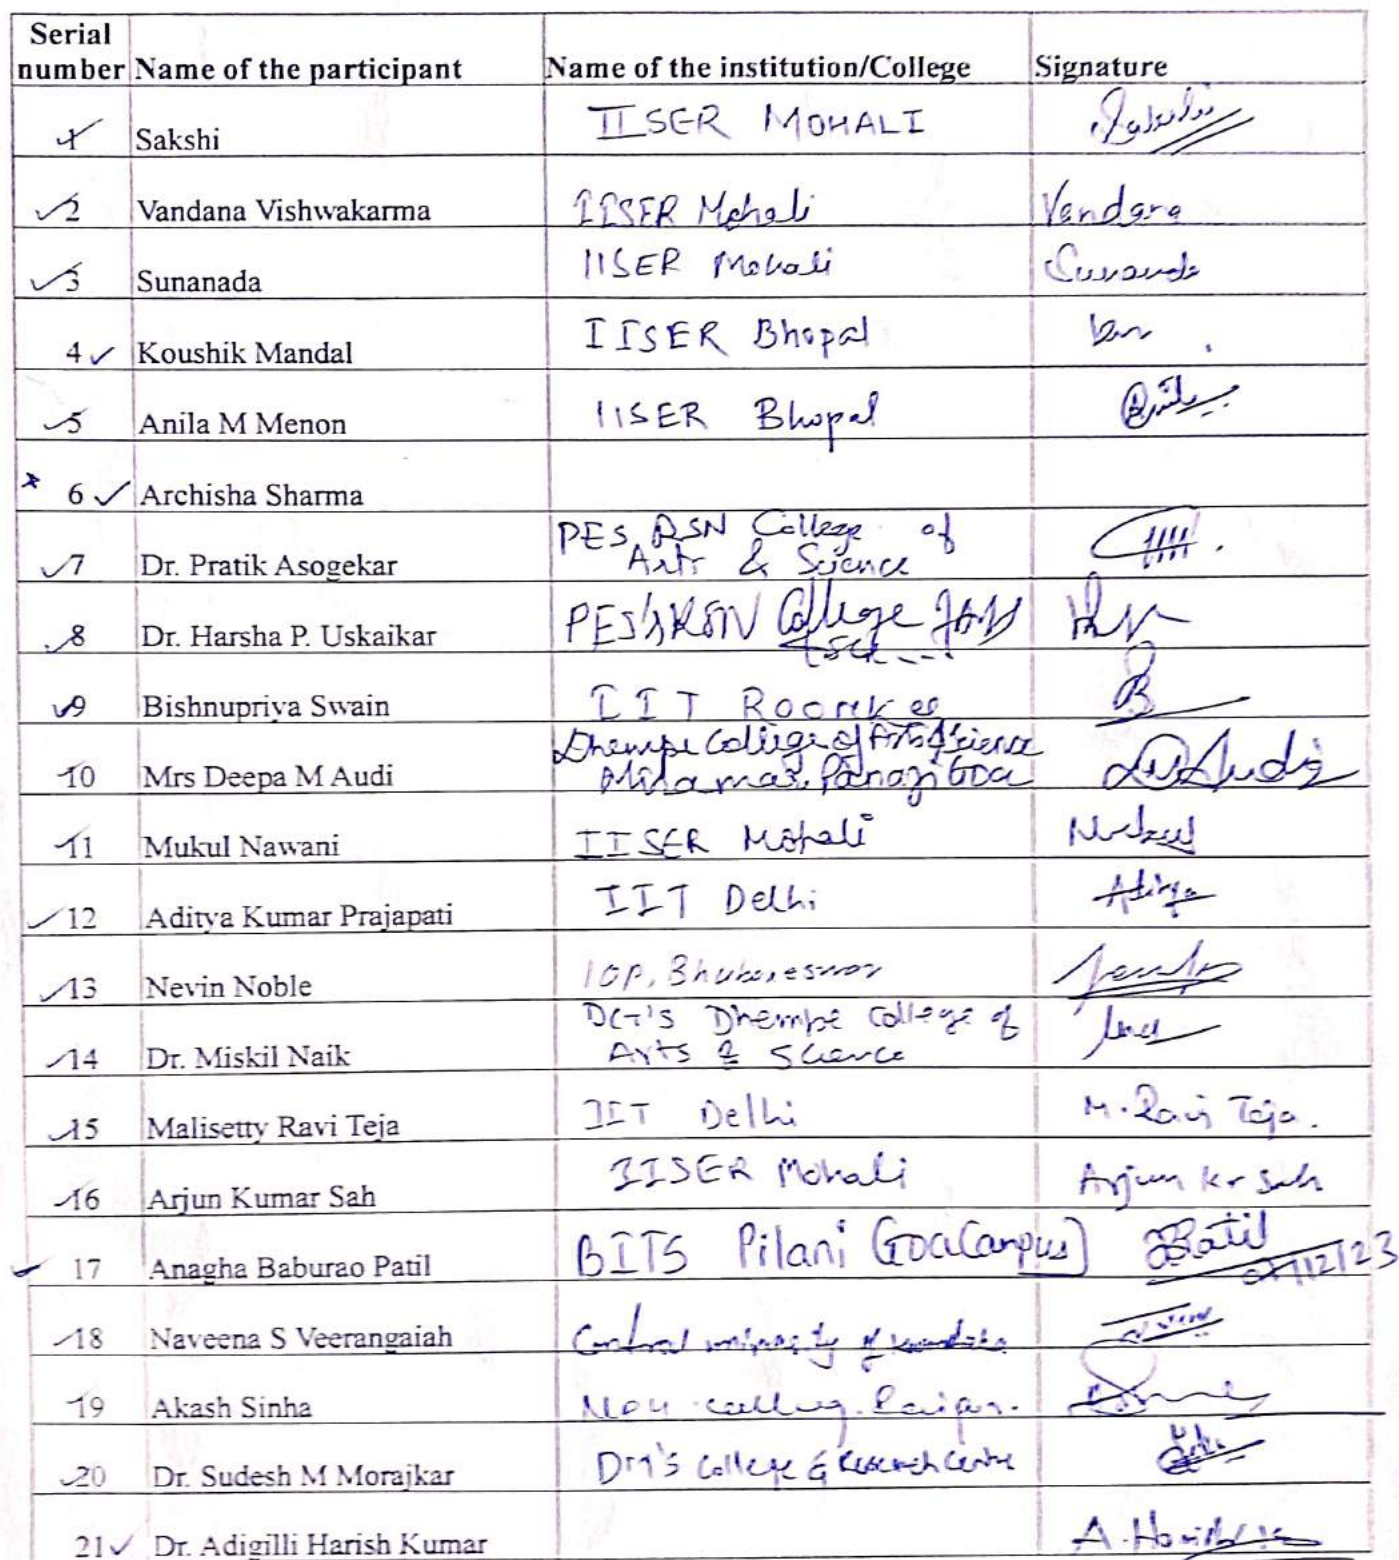 Serial
number Name of the participant Name of the institution/College Signature
1 Sakshi IISER MOHALI
2 Vandana Vishwakarma IISER Mohali Vandana
3 Sunanada IISER Mohali Sunanda
4 Koushik Mandal IISER Bhopal
5 Anila M Menon IISER Bhopal
6 Archisha Sharma
PES RSN College of
7 Dr. Pratik Asogekar Arts & Science
8 Dr. Harsha P. Uskaikar College
9 Bishnupriya Swain IIT Roorkee
Dhempe College of Arts & Science
10 Mrs Deepa M Audi Miramar, Panaji Goa DAudi
11 Mukul Nawani IISER Mohali Mukul
12 Aditya Kumar Prajapati IIT Delhi Aditya
13 Nevin Noble IOP, Bhubaneswar
DCT's Dhempe College of
14 Dr. Miskil Naik Arts & Science
15 Malisetty Ravi Teja IIT Delhi M. Ravi Teja.
16 Arjun Kumar Sah IISER Mohali Arjun kr Sah
17 Anagha Baburao Patil BITS Pilani (Goa Campus) Patil
/12/23
18 Naveena S Veerangaiah Central university of karnataka
19 Akash Sinha
20 Dr. Sudesh M Morajkar DM's College & Research Centre
21 Dr. Adigilli Harish Kumar A. Harish